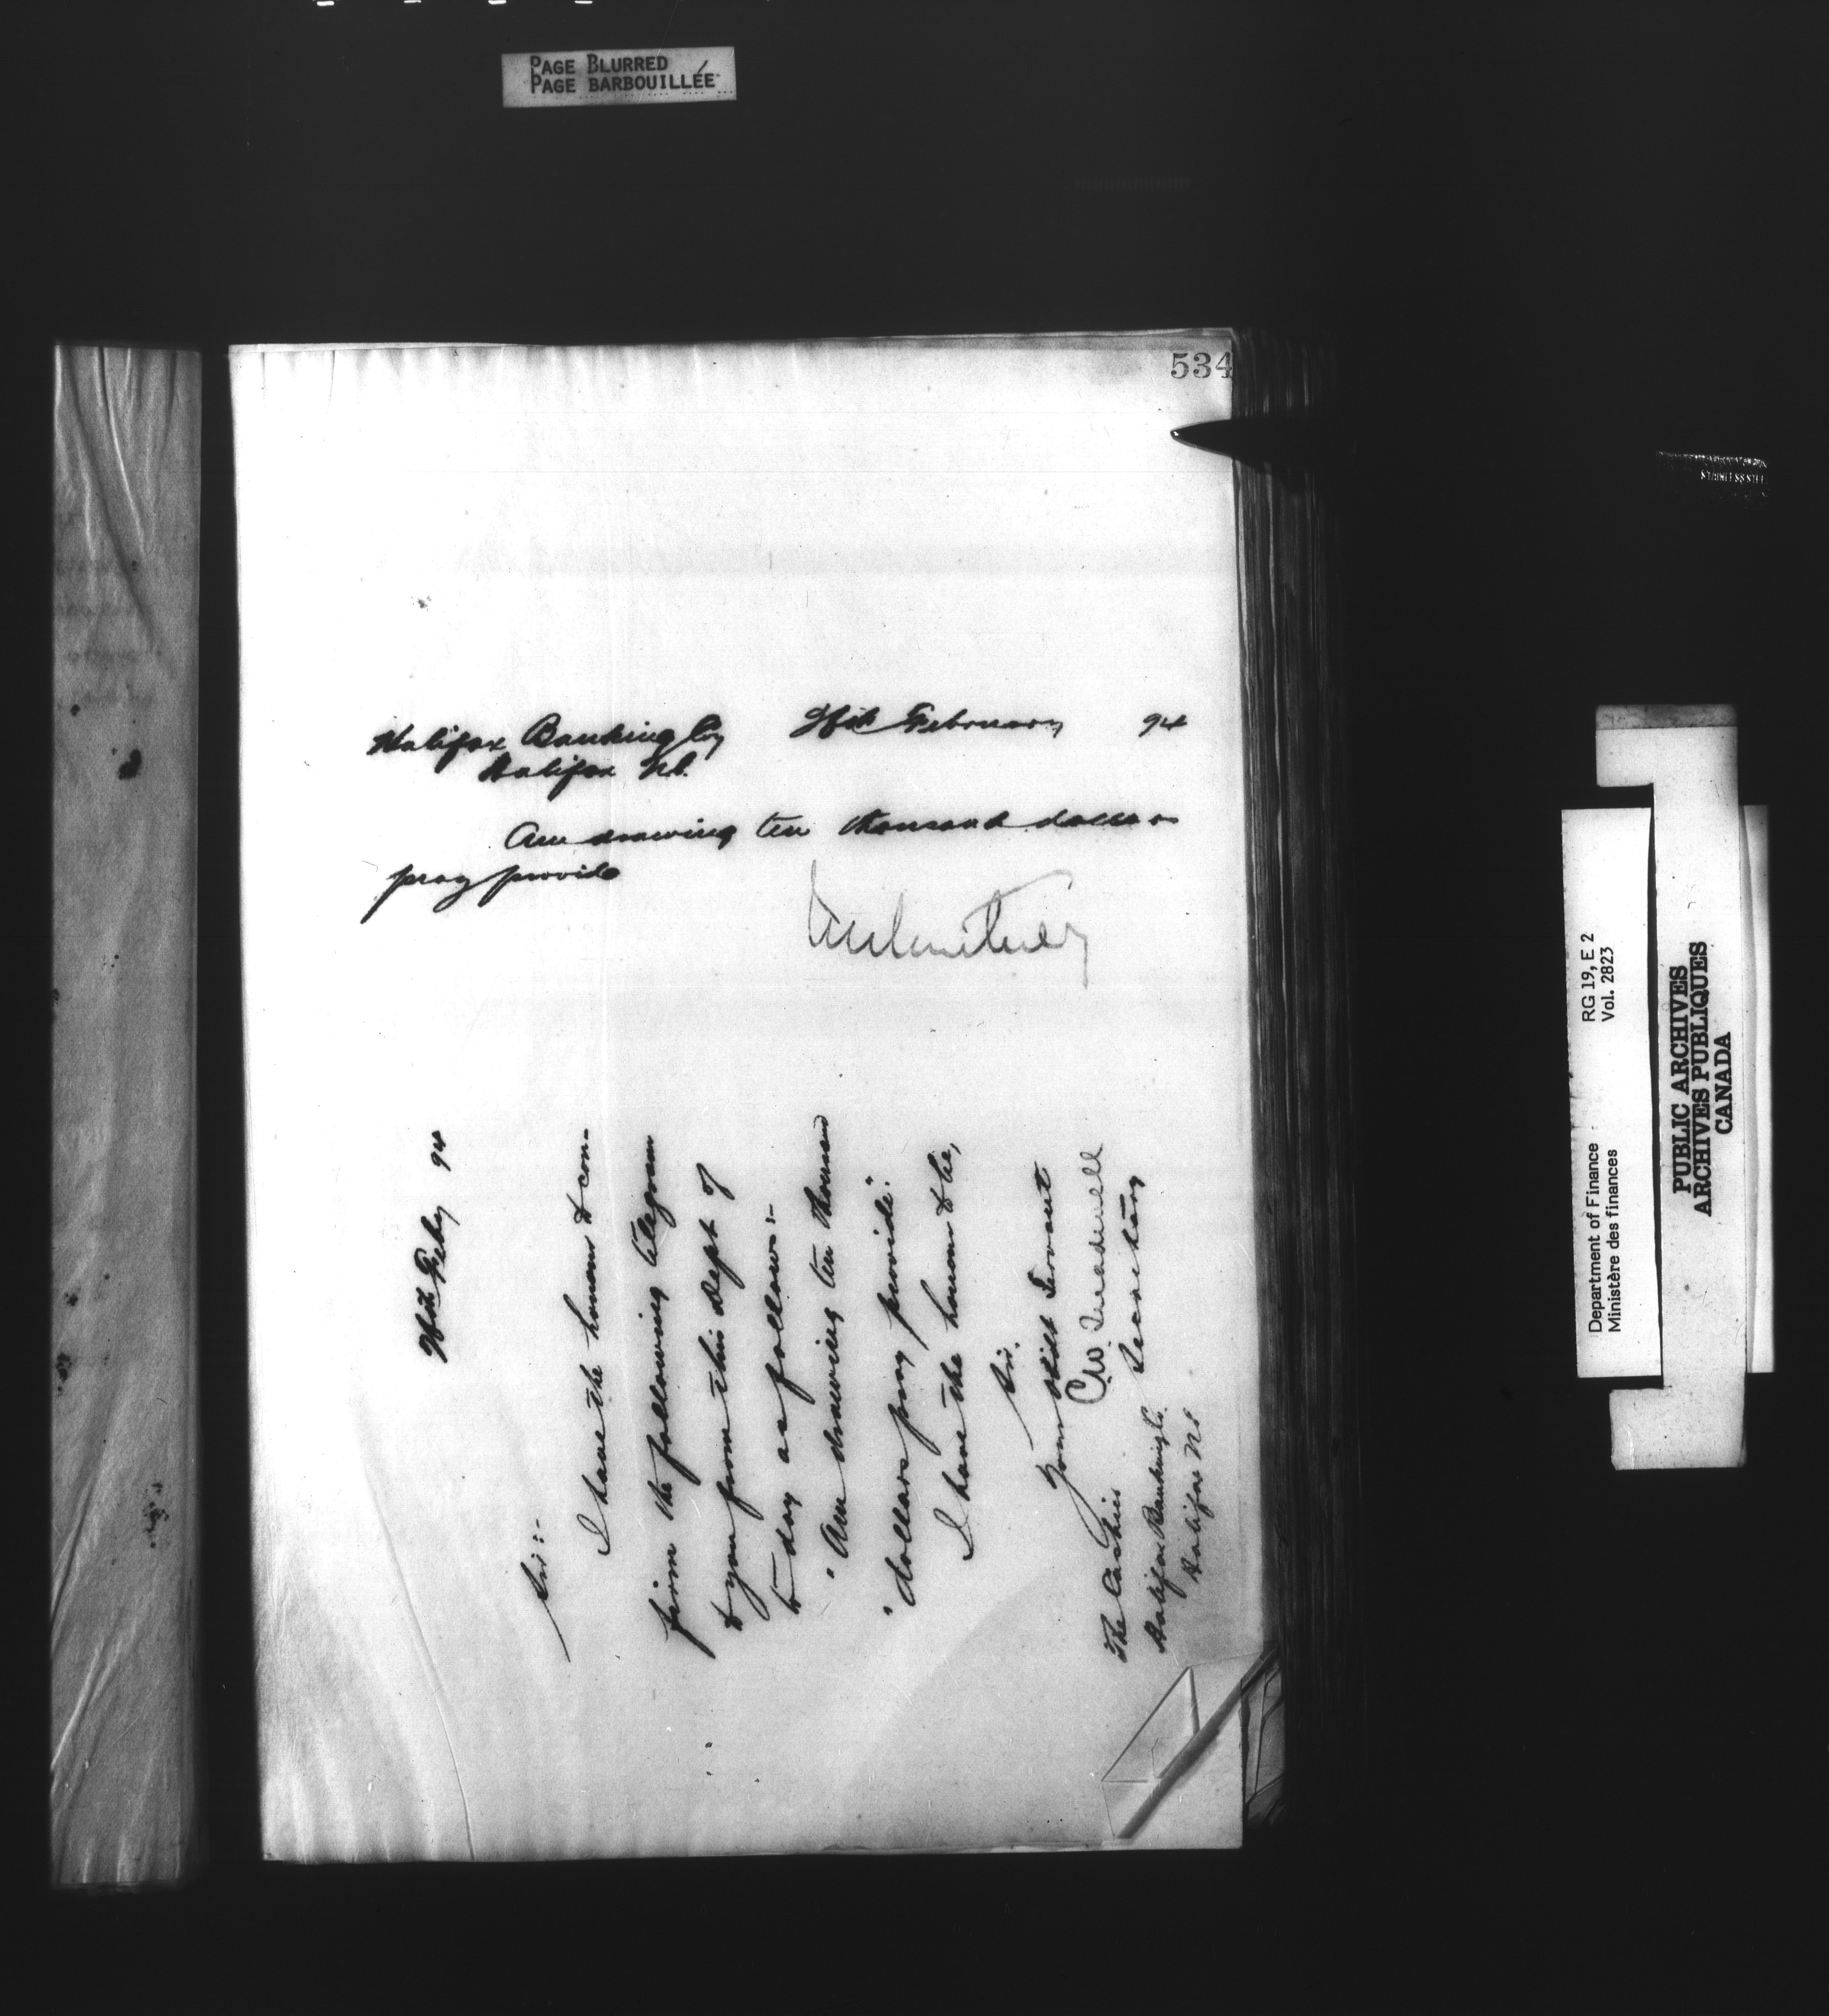 PAGE BLURRED
PAGE BARBOUILLÉE
534
Halifax Banking Coy February 94
Halifax N.S.
Am drawing ten thousand dollars
pray provide
Feby 94
Sir:-
I have the honour to con-
firm the following telegram
to you from this Dept of
to day as follows:-
"Am drawing ten thousand
"dollars pray provide."
I have the honour to be,
Sir,
Your obdt Servant
Secretary
The Cashier
Halifax Banking Co.
Halifax N.S.
Department of Finance RG 19, E 2
Ministère des finances Vol. 2823
PUBLIC ARCHIVES
ARCHIVES PUBLIQUES
CANADA